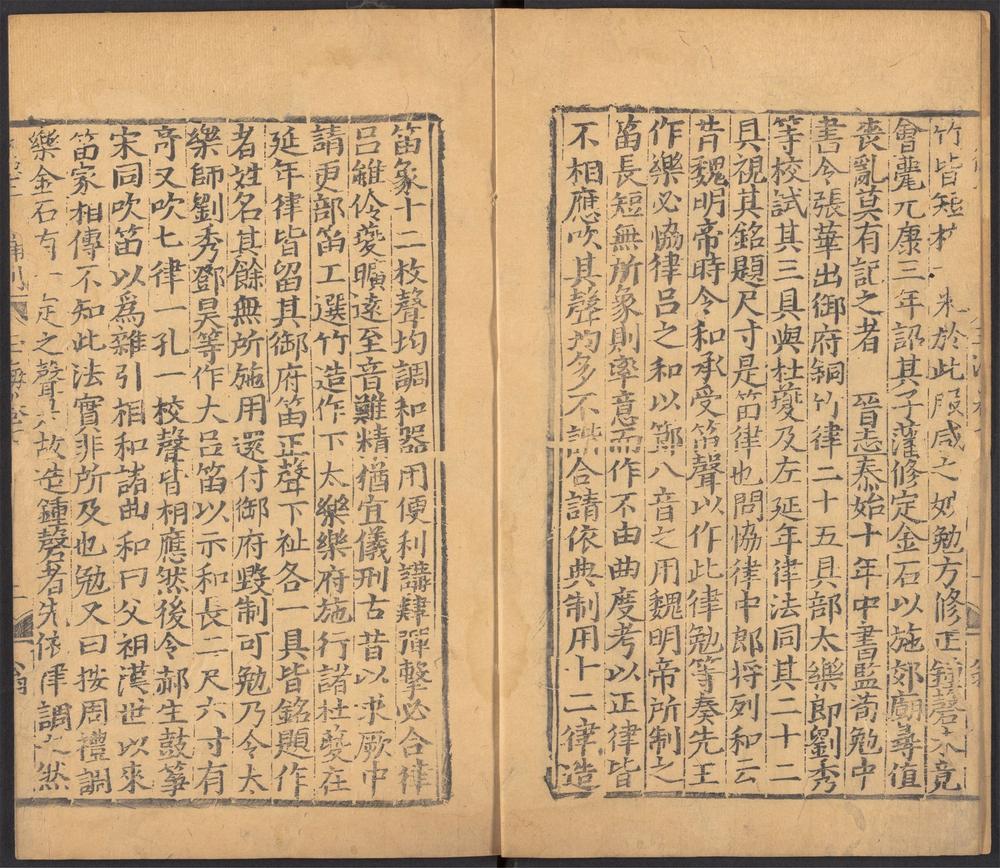 竹皆短 來於此服咸之妙勉方修正鐘磬未竟
會薨元康三年詔其子藩修定金石以施郊廟尋值
喪亂莫有記之者 晉志泰始十年中書監荀勉中
書令張華出御府銅竹律二十五具部太樂郎劉秀
等校試其三具與杜夔及左延年律法同其二十二
具視其銘題尺寸是笛律也問協律中郎將列和云
昔魏明帝時令和承受笛聲以作此律勉等奏先王
作樂必協律吕之和以節八音之用魏明帝所制之
笛長短無所象則率意而作不由曲度考以正律皆
不相應吹其聲均多不諧合請依典制用十二律造
笛象十二枚聲均調和器用便利講肄彈擊必合律
吕雖伶夔曠遠至音難精猶宜儀刑古昔以求厥中
請更部笛工選竹造作下太樂樂府施行諸杜夔左
延年律皆留其御府笛正聲下祉各一具皆銘題作
者姓名其餘無所施用還付御府毀制可勉乃令太
樂師劉秀鄧昊等作大吕笛以示和長二尺六寸有
竒又吹七律一孔一校聲皆相應然後令郝生鼓筝
宋同吹笛以爲雜引相和諸曲和曰父祖漢世以來
笛家相傳不知此法實非所及也勉又曰按周禮調
樂金石有一定之聲是故造鍾磬者先依律調之然